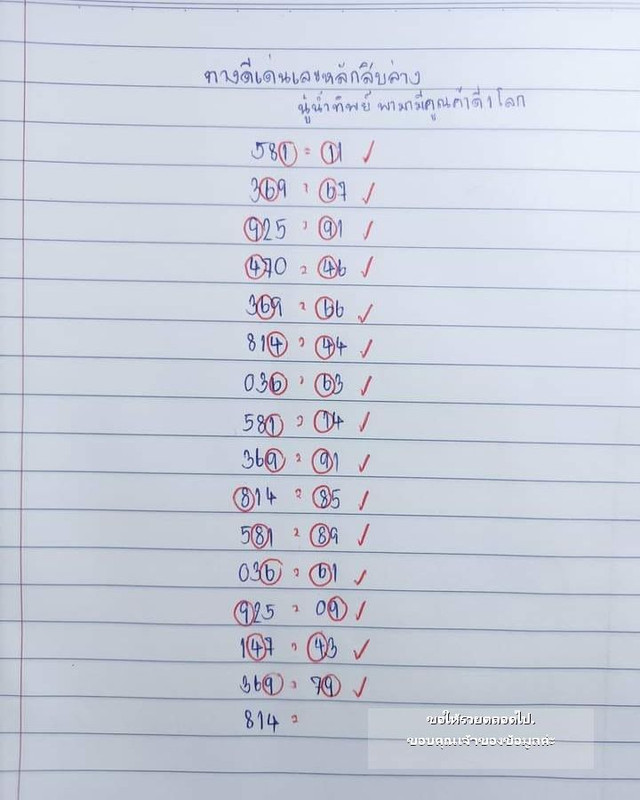 ทางดีเด่นเลขหลักสิบล่าง
ปู่นำทิพย์ พามามีคูณค้าดี1โลก
581 = 11 ✓
369 = 67 ✓
925 = 91 ✓
470 = 46 ✓
369 = 66 ✓
814 = 44 ✓
036 = 63 ✓
581 = 14 ✓
369 = 91 ✓
814 = 85 ✓
581 = 89 ✓
036 = 61 ✓
925 = 09 ✓
147 = 43 ✓
369 = 79 ✓
814 =
ขอให้รวยตลอดไป.
ขอบคุณเจ้าของข้อมูลค่ะ